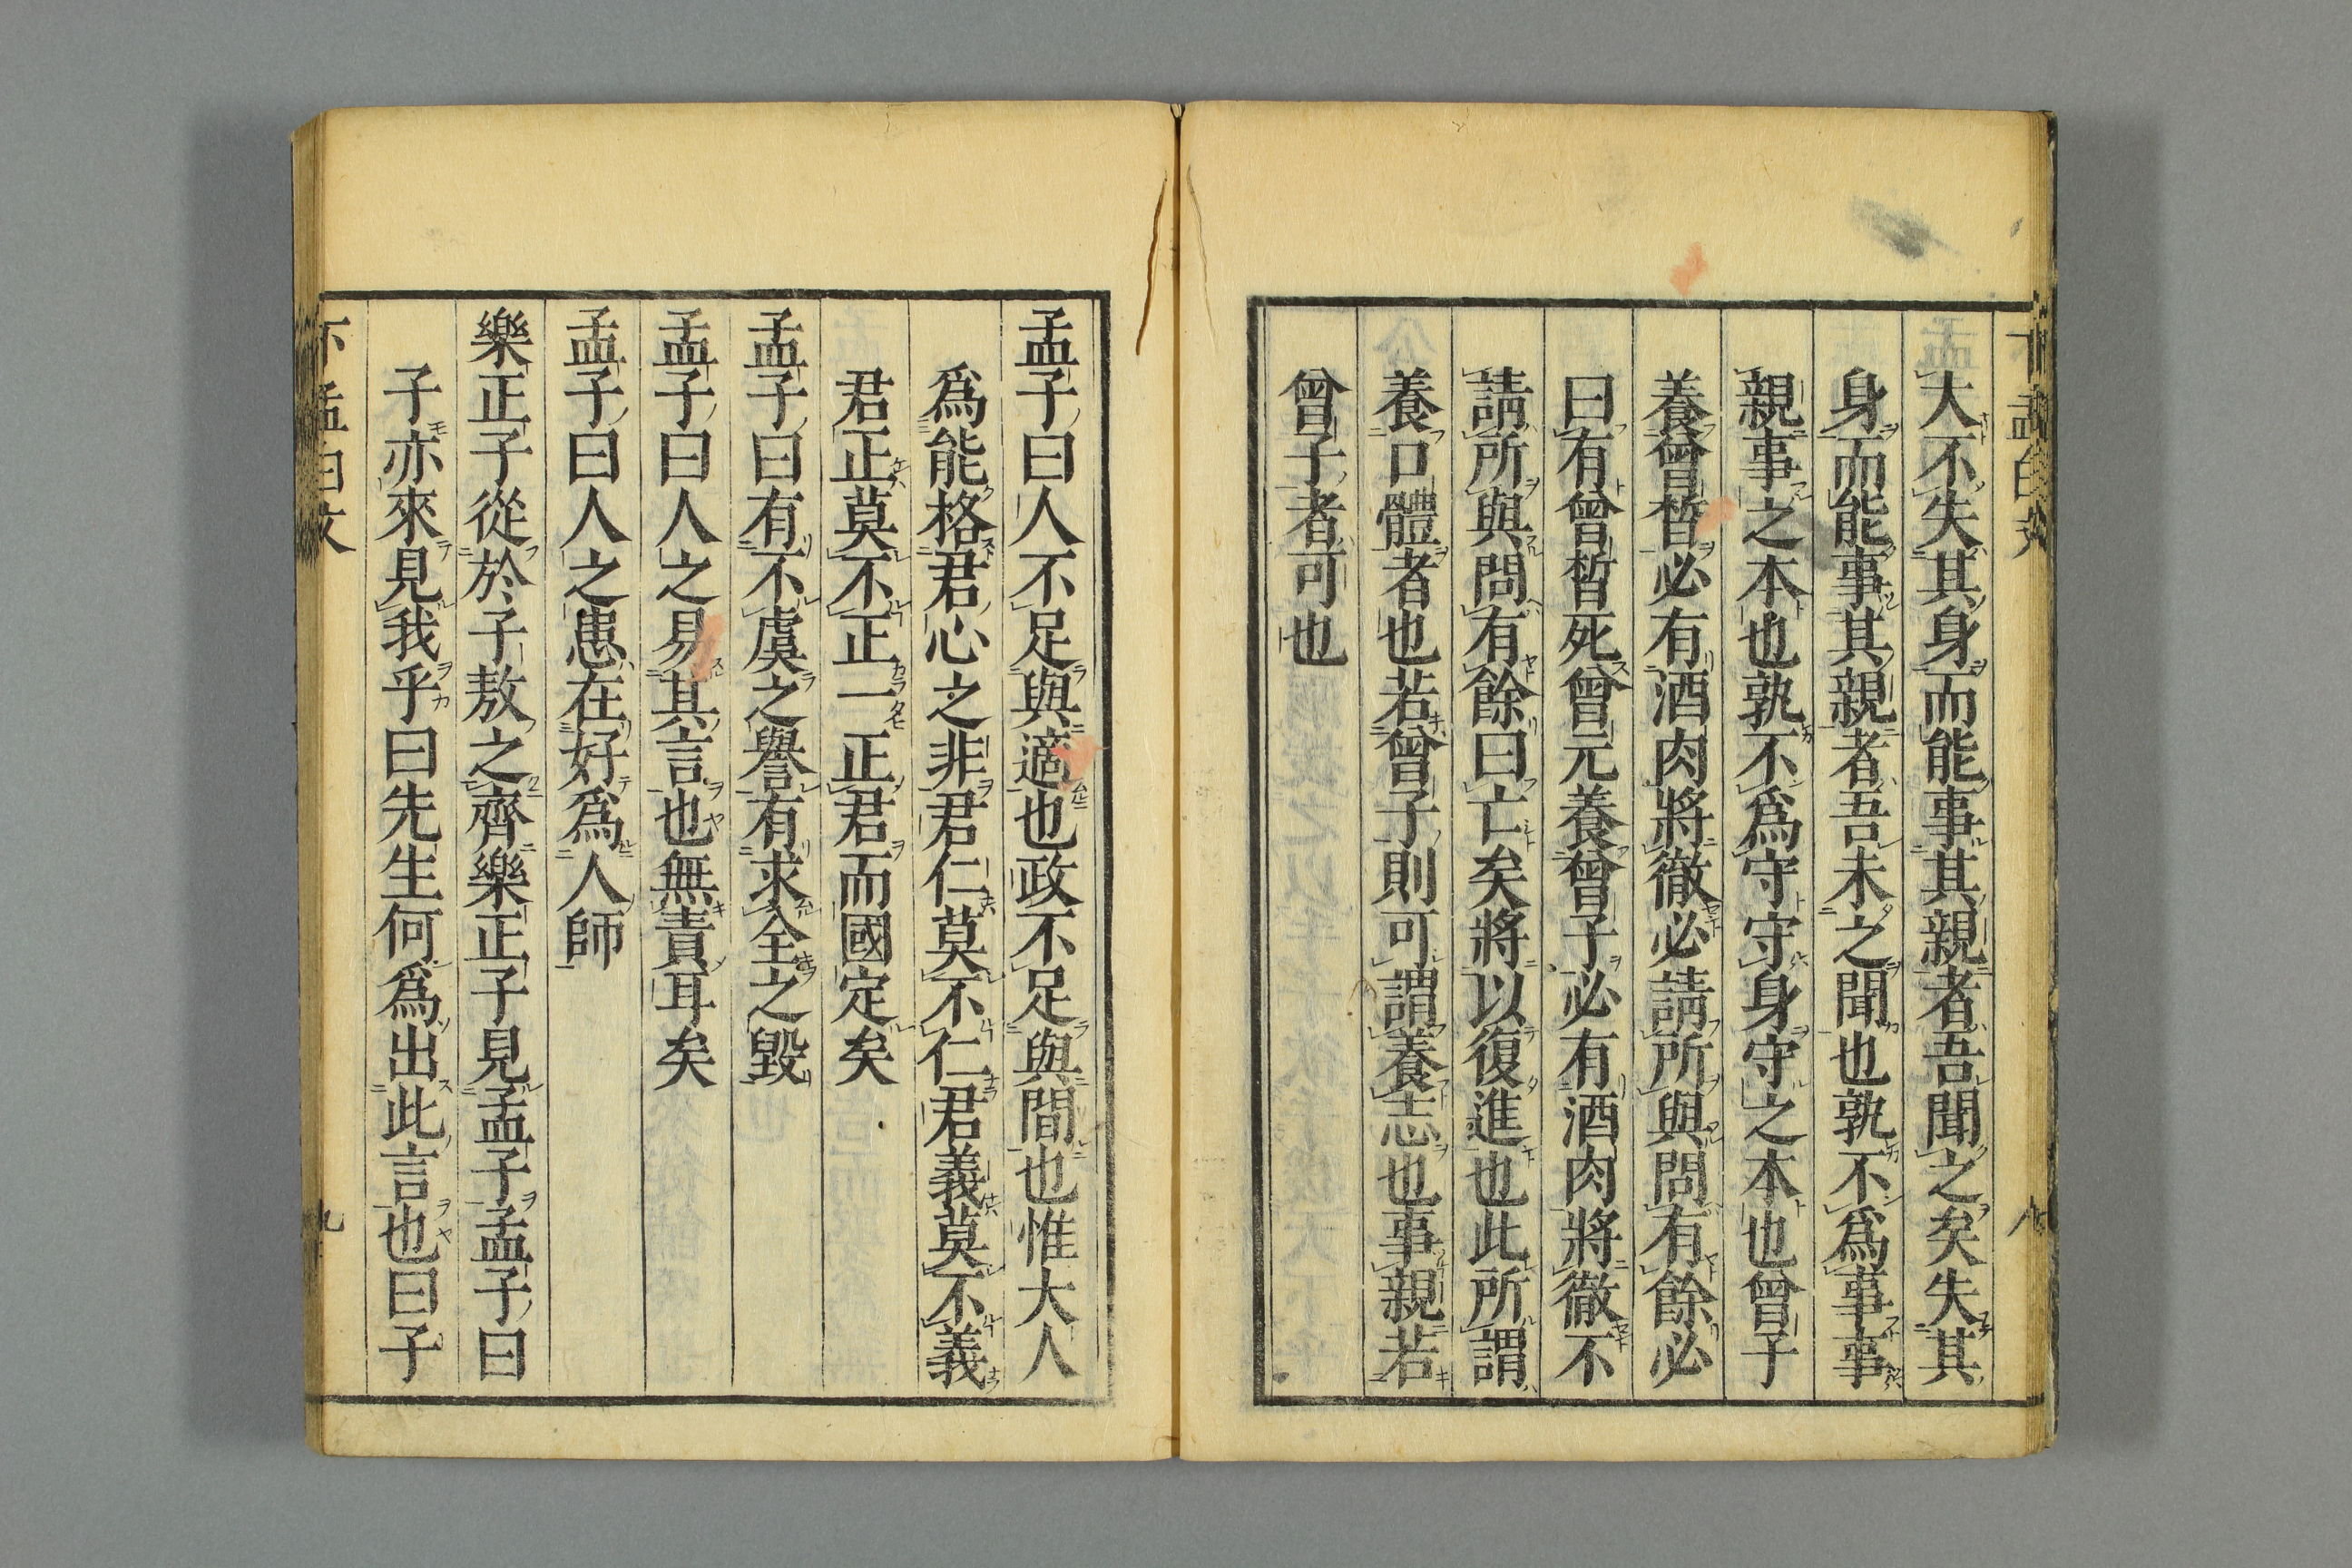 大不失其身而能事其親者吾聞之矣失其
身而能事其親者吾未之聞也孰不爲事事
親事之本也孰不爲守守身守之本也曾子
養曾晳必有酒肉將徹必請所與問有餘必
曰有曾晳死曾元養曾子必有酒肉將徹不
請所與問有餘曰亡矣將以復進也此所謂
養口體者也若曾子則可謂養志也事親若
曾子者可也
孟子曰人不足與適也政不足與間也惟大人
爲能格君心之非君仁莫不仁君義莫不義
君正莫不正一正君而國定矣
孟子曰有不虞之譽有求全之毀
孟子曰人之易其言也無責耳矣
孟子曰人之患在好爲人師
樂正子從於子敖之齊樂正子見孟子孟子曰
子亦來見我乎曰先生何爲出此言也曰子
下孟白文
九